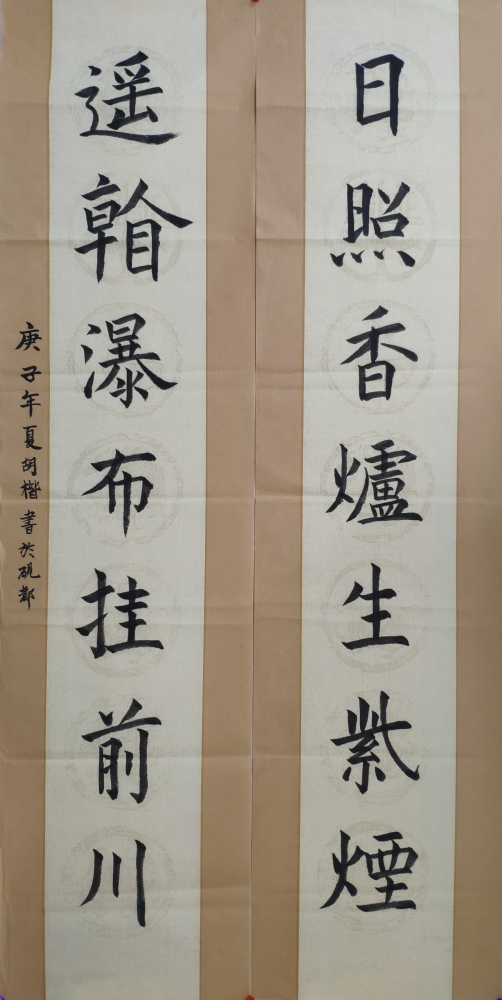 日照香爐生紫煙
遥瀑布挂前川
庚子年夏胡楷書於硯都